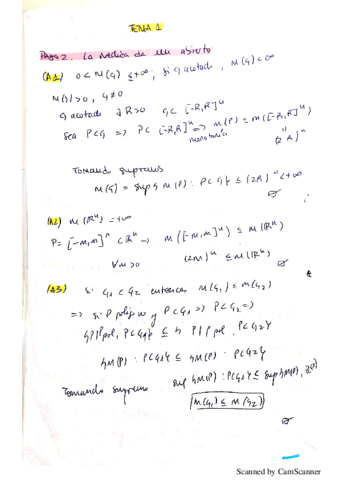 TEMA 1
Paso 2. La medida de un abierto
(A1) 0 < m(G) ≤ +∞, si G acotado, m(G) < ∞
m(G) > 0, G ≠ ∅
G acotado ∃ R>0 G ⊂ [-R,R]ⁿ
Sea P⊂G => P ⊂ [-R,R]ⁿ => m(P) ≤ m([-R,R]ⁿ)
monotonía
(2R)ⁿ
Tomando supremos
m(G) = sup{m(P) : P⊂G} ≤ (2R)ⁿ < +∞
(A2) m(ℝⁿ) = +∞
P = [-m,m]ⁿ ⊂ ℝⁿ → m([-m,m]ⁿ) ≤ m(ℝⁿ)
∀m>0 (2m)ⁿ ≤ m(ℝⁿ)
(A3) si G₁ ⊂ G₂ entonces m(G₁) ≤ m(G₂)
=> si P polígono y P⊂G₁ => P⊂G₂ =>
{P / P pol, P⊂G₁} ⊆ {P / P pol, P⊂G₂}
{m(P) : P⊂G₁} ⊆ {m(P) : P⊂G₂}
Tomando supremo sup{m(P) : P⊂G₁} ≤ sup{m(P),
m(G₁) ≤ m(G₂)
Scanned by CamScanner